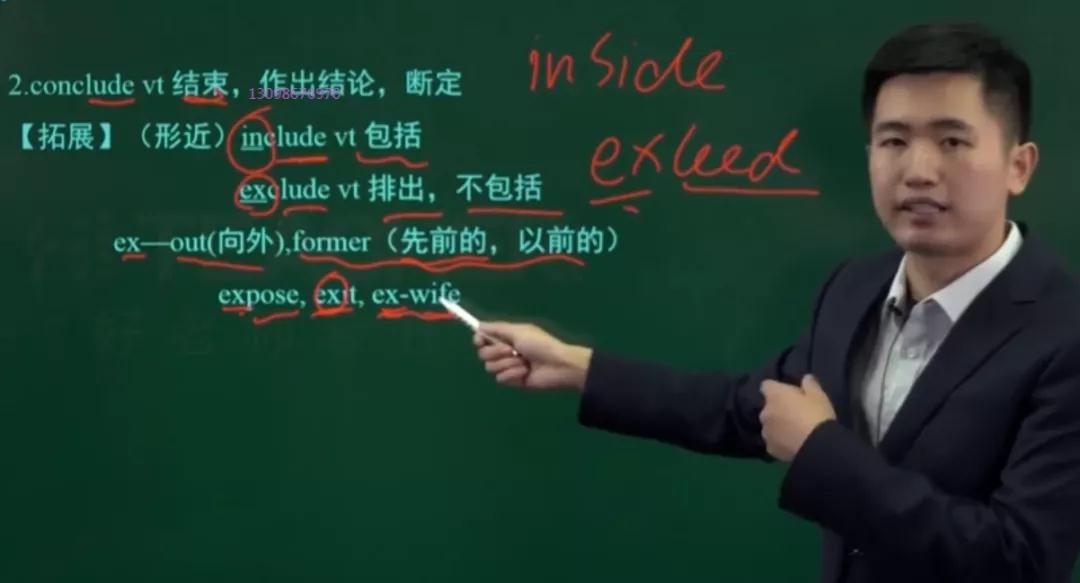 inside
2.conclude vt 结束，作出结论，断定
【拓展】（形近）include vt 包括
exceed
exclude vt 排出，不包括
ex—out(向外),former（先前的，以前的）
expose, exit, ex-wife